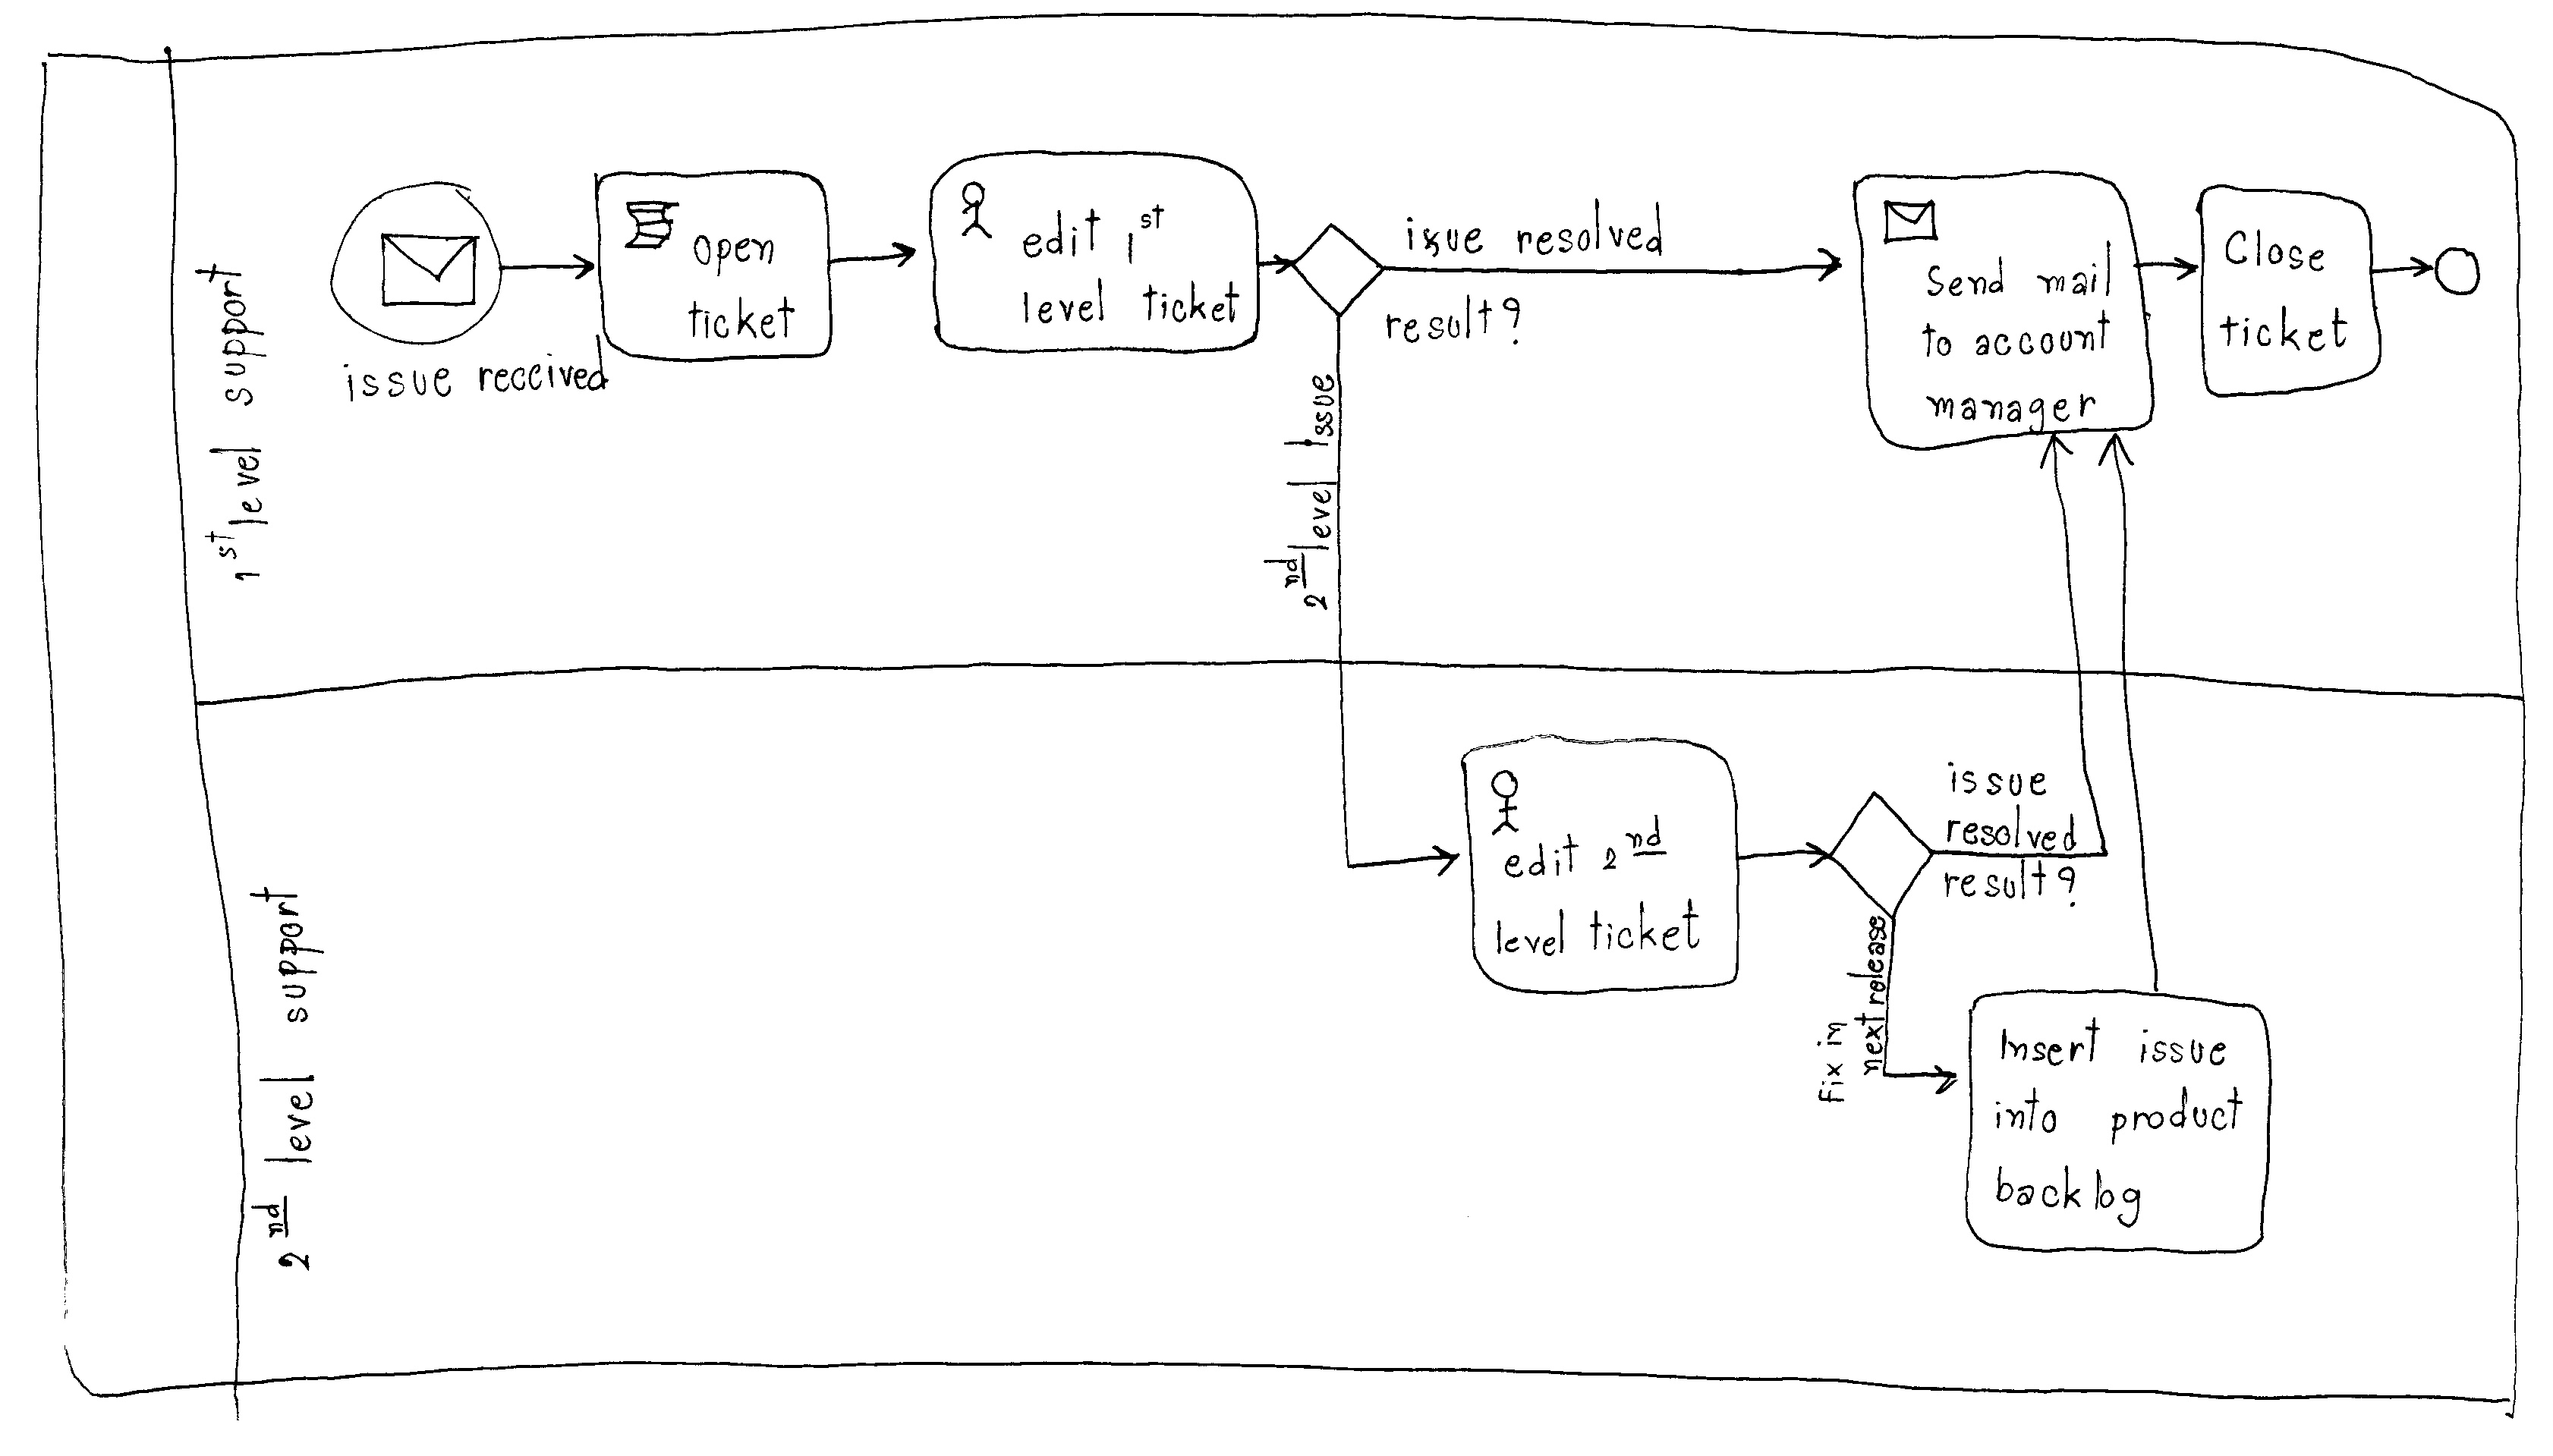 1st level support
issue received
open
ticket
edit 1st
level ticket
issue resolved
result?
2nd level Issue
Send mail
to account
manager
Close
ticket
2nd level support
edit 2nd
level ticket
issue
resolved
result?
Fix in
next release
Insert issue
into product
backlog